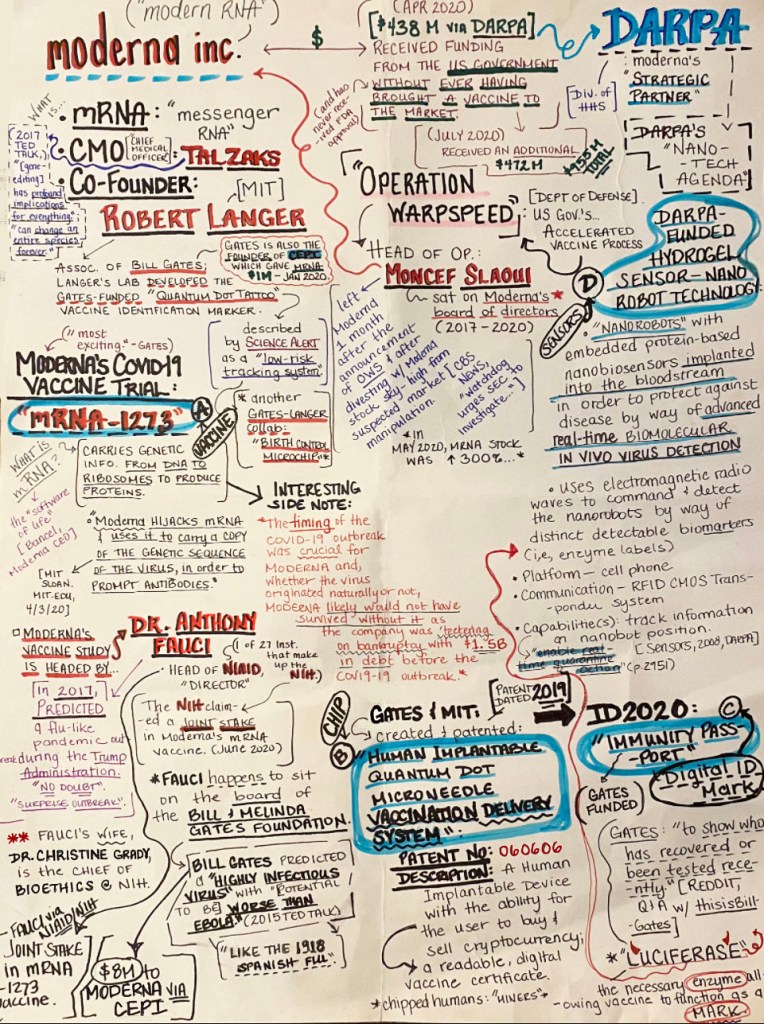 ("modern RNA")
moderna inc.
$
(APR 2020)
[$438 M VIA DARPA]
RECEIVED FUNDING
FROM THE US GOVERNMENT
WITHOUT EVER HAVING
BROUGHT A VACCINE TO
THE MARKET.
(and has
never rece-
ived FDA
approval)
(JULY 2020)
RECEIVED AN ADDITIONAL
$472 M
$955 M
TOTAL
DARPA
: moderna's
"STRATEGIC
PARTNER"
[DIV. of
HHS
DARPA'S
"NANO-
TECH
AGENDA"
WHAT
IS...
• mRNA: "messenger
RNA"
• CMO [CHIEF
MEDICAL
OFFICER]: TAL ZAKS
• CO-FOUNDER:
[MIT]
ROBERT LANGER
(2017
TED
TALK,)
"[gene-
editing]
has profound
implications
for everything."
"can change an
entire species
forever."
ASSOC. OF BILL GATES;
LANGER'S LAB DEVELOPED THE
GATES-FUNDED "QUANTUM DOT TATTOO"
VACCINE IDENTIFICATION MARKER.
GATES IS ALSO THE
FOUNDER OF CEPI
WHICH GAVE MRNA
$1M - JAN 2020
described
by SCIENCE ALERT
as a "low-risk
tracking system"
* another
GATES-LANGER
COLLAB:
"BIRTH CONTROL
MICROCHIP"*
"OPERATION
WARPSPEED"
[DEPT OF DEFENSE]
: US GOV.'S...
ACCELERATED
VACCINE PROCESS
HEAD OF OP.:
MONCEF SLAOUI
sat on Moderna's*
board of directors
(2017-2020)
left
Moderna
1 month
after the
announcement
of OWS & after
divesting w/ Moderna
stock sky-high from
suspected market
manipulation.
[CBS
NEWS,
"watchdog
urges SEC to
investigate..."]
*IN
MAY 2020, MRNA STOCK
WAS ↑ 300%...*
D
SENSORS
DARPA-
FUNDED
HYDROGEL
SENSOR-NANO
ROBOT TECHNOLOGY:
• "NANOROBOTS" with
embedded protein-based
nanobiosensors implanted
into the bloodstream
in order to protect against
disease by way of advanced
real-time BIOMOLECULAR
IN VIVO VIRUS DETECTION
• USES electromagnetic radio
waves to command & detect
the nanorobots by way of
distinct detectable biomarkers
(i.e., enzyme labels)
• Platform - cell phone
• Communication - RFID CMOS Trans-
ponder system
• Capabilitie(s): track information
on nanobot position.
"enable real-
time quarantine
action"
[SENSORS, 2008, DARPA]
(p.2951)
"most
exciting." -GATES)
MODERNA'S COVID-19
VACCINE TRIAL:
"mRNA-1273"
A
VACCINE
WHAT IS
mRNA?
CARRIES GENETIC
INFO. FROM DNA TO
RIBOSOMES TO PRODUCE
PROTEINS.
the "software
of life"
[Bancel,
Moderna CEO]
• "Moderna HIJACKS mRNA
& uses it TO CARRY A COPY
OF THE GENETIC SEQUENCE
OF THE VIRUS, IN ORDER TO
PROMPT ANTIBODIES."
[MIT
SLOAN.
MIT.EDU,
4/3/20]
INTERESTING
SIDE NOTE:
*The timing of the
COVID-19 outbreak
was crucial for
MODERNA and,
whether the virus
originated naturally or not,
MODERNA likely would not have
survived without it as
the company was "teetering
on bankruptcy with $1.5B
in debt before the
COVID-19 outbreak.*
MODERNA'S
VACCINE STUDY
IS HEADED BY...
DR. ANTHONY
FAUCI
• HEAD OF NIAID,
"DIRECTOR"
(1 of 27 Inst.
that make
up the NIH.)
[IN 2017,
PREDICTED
a flu-like
pandemic out-
break during the Trump
Administration.
"NO DOUBT"
"SURPRISE OUTBREAK".
The NIH claim-
ed a JOINT STAKE
in Moderna's mRNA
vaccine. (June 2020)
*FAUCI happens to sit
on the board of
the BILL & MELINDA
GATES FOUNDATION.
** FAUCI'S WIFE,
DR. CHRISTINE GRADY,
IS THE CHIEF OF
BIOETHICS @ NIH.
BILL GATES PREDICTED
A "HIGHLY INFECTIOUS
VIRUS" WITH "POTENTIAL
TO BE WORSE THAN
EBOLA." (2015 TED TALK)
"LIKE THE 1918
SPANISH FLU."
-FAUCI via
NIAID/NIH
JOINT STAKE
in mRNA
-1273
vaccine.
$8M to
MODERNA VIA
CEPI
CHIP
B
GATES & MIT:
created & patented:
[PATENT
DATED 2019]
"HUMAN IMPLANTABLE
QUANTUM DOT
MICRONEEDLE
VACCINATION DELIVERY
SYSTEM":
PATENT NO: 060606
DESCRIPTION: A Human
Implantable Device
with the ability for
the user to buy &
sell cryptocurrency;
a readable, digital
vaccine certificate.
*chipped humans: "MINERS"*
ID2020:
C
"IMMUNITY PASS-
PORT"
Digital ID
Mark
(GATES
FUNDED)
GATES: "to show who
has recovered or
been tested rece-
ntly." [REDDIT,
Q&A w/ thisisBill-
Gates]
*"LUCIFERASE"
the necessary enzyme all-
-owing vaccine to function as a
MARK